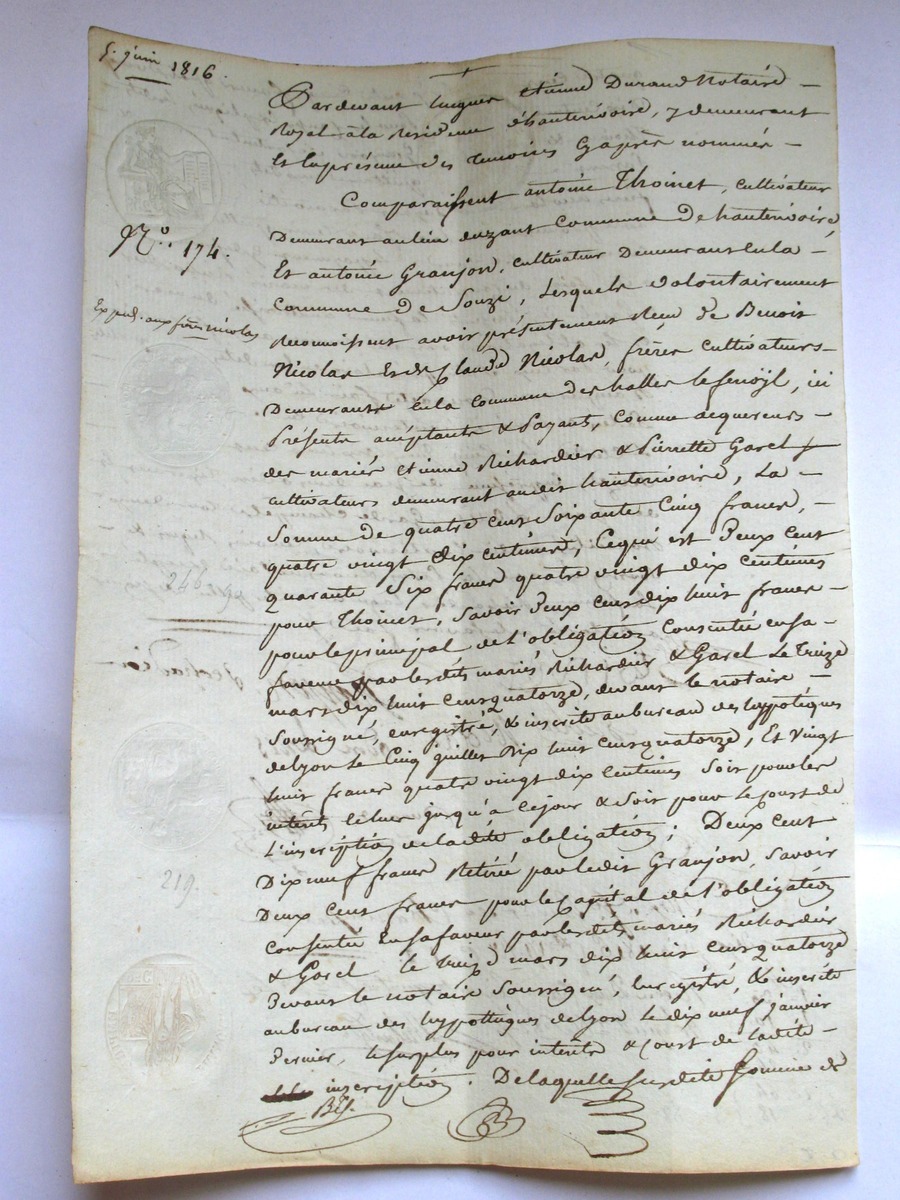 5. juin 1816.
Pardevant luiguer etienne Durand Notaire
Royal a la residence d'hauterivoire, y demeurant
Et la présence des temoins Cy après nommés
Comparaissent antoine Thoinet, cultivateur
Demeurant au lieu duzant Commune De hauterivoire,
Et antoine Granjon, cultivateur Demeurant En la
Commune De Souzi, Lesquels volontairement
Reconnoissent avoir présentement Reçu de Benoit
Nicolas Et de Claude Nicolas, frères cultivateurs
Demeurants En la commune des halles le fenoÿl, ici
Présents acceptants & Payants, comme acquereurs
des mariés etienne Richardier & Pierrette Garel
cultivateurs demeurant audit hauterivoire, La
Somme de quatre cent Soixante Cinq francs,
quatre vingt Dix centimes, Ce qui est Deux cent
quarante Six francs quatre vingt dix centimes
pour Thoinet, Savoir Deux cens dix huit francs
pour le principal de l'obligation Consentie en sa
faveur par lesdits mariés Richardier & Garel Le treize
mars dix huit cens quatorze, devant le notaire
Soussigné, enregistré, & inscrite au bureau des hypotéques
de Lyon Le Cinq juillet Dix huit cens quatorze, Et Vingt
huit francs quatre vingt dix Centimes Soit pour les
intérêts échus jusqu'à ce jour & Soit pour le coust de
L'inscription de ladite obligation; Deux Cent
Dix neuf francs Retirés par ledit Granjon, Savoir
Deux Cent francs pour le Capital de l'obligation
Consentie En sa faveur par lesdits mariés Richardier
& Garel le treize mars dix huit cens quatorze
Devant le notaire Soussigné, Enregistré, & inscrite
au bureau des hypottéques de Lyon le dix neuf janvier
Dernier, le surplus pour intérêts & coust de ladite
inscription. De laquelle susdite Somme de
N.º 174.
Expéd. aux frères nicolas
246
219.